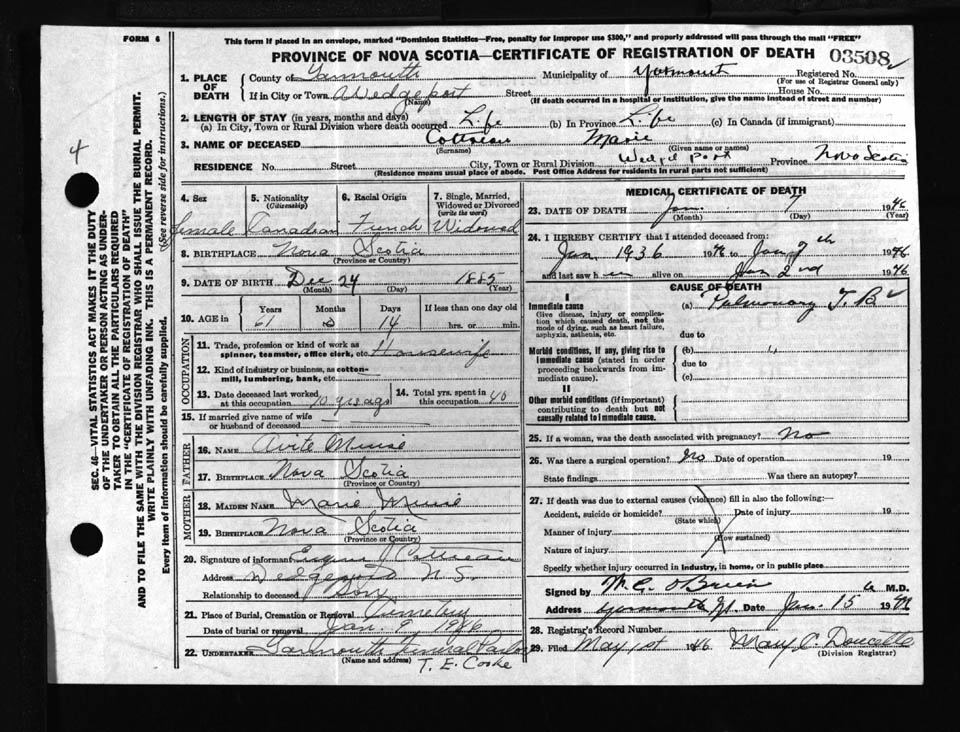 FORM 6
This form if placed in an envelope, marked "Dominion Statistics—Free, penalty for improper use $300," and properly addressed will pass through the mail "FREE"
PROVINCE OF NOVA SCOTIA—CERTIFICATE OF REGISTRATION OF DEATH 03508
1. PLACE OF DEATH County of Yarmouth Municipality of Yarmouth Registered No.
(For use of Registrar General only)
If in City or Town Wedgeport Street House No.
(Name) (If death occurred in a hospital or institution, give the name instead of street and number)
2. LENGTH OF STAY (in years, months and days)
(a) In City, Town or Rural Division where death occurred Life (b) In Province Life (c) In Canada (if immigrant)
3. NAME OF DECEASED Cottreau Marie
(Surname) (Given name or names)
RESIDENCE No. Street City, Town or Rural Division Wedge Port Province Nova Scotia
(Residence means usual place of abode. Post Office Address for residents in rural parts not sufficient)
4. Sex 5. Nationality (Citizenship) 6. Racial Origin 7. Single, Married, Widowed or Divorced (write the word)
Female Canadian French Widowed
8. BIRTHPLACE Nova Scotia
(Province or Country)
9. DATE OF BIRTH Dec 24 1885
(Month) (Day) (Year)
10. AGE in Years Months Days If less than one day old
61 14 hrs. or min.
OCCUPATION
11. Trade, profession or kind of work as spinner, teamster, office clerk, etc. Housewife
12. Kind of industry or business, as cotton-mill, lumbering, bank, etc.
13. Date deceased last worked at this occupation 10 yrs ago 14. Total yrs. spent in this occupation 40
15. If married give name of wife or husband of deceased
FATHER
16. NAME Avite Muise
17. BIRTHPLACE Nova Scotia
(Province or Country)
MOTHER
18. MAIDEN NAME Marie Muise
19. BIRTHPLACE Nova Scotia
(Province or Country)
20. Signature of informant J Cottreau
Address Wedgeport N S
Relationship to deceased Son
21. Place of Burial, Cremation or Removal Cemetery
Date of burial or removal Jan. 9 1946
22. UNDERTAKER Yarmouth Funeral Parlor
(Name and address) T. E. Cooke
MEDICAL CERTIFICATE OF DEATH
23. DATE OF DEATH Jan. 7 1946
(Month) (Day) (Year)
24. I HEREBY CERTIFY that I attended deceased from:
Jan 1936 19 to Jan 7th 1946
and last saw her alive on Jan 2nd 1946
CAUSE OF DEATH
I
Immediate cause (a) Pulmonary T B
Give disease, injury or complication which caused death, not the mode of dying, such as heart failure, asphyxia, asthenia, etc.
due to
Morbid conditions, if any, giving rise to immediate cause (stated in order proceeding backwards from immediate cause).
(b)
due to
(c)
II
Other morbid conditions (if important) contributing to death but not causally related to immediate cause.
25. If a woman, was the death associated with pregnancy? No
26. Was there a surgical operation? No Date of operation 19
State findings Was there an autopsy?
27. If death was due to external causes (violence) fill in also the following:—
Accident, suicide or homicide? Date of injury 19
(State which)
Manner of injury
(How sustained)
Nature of injury
Specify whether injury occurred in industry, in home, or in public place
Signed by M. C. O'Brien M.D.
Address Yarmouth Date Jan. 15 19
28. Registrar's Record Number
29. Filed May 1st 1946 Mary C. Doucette
(Division Registrar)
4
SEC. 46—VITAL STATISTICS ACT MAKES IT THE DUTY
OF THE UNDERTAKER OR PERSON ACTING AS UNDER-
TAKER TO OBTAIN ALL THE PARTICULARS REQUIRED
IN THE "CERTIFICATE OF REGISTRATION OF DEATH"
AND TO FILE THE SAME WITH THE DIVISION REGISTRAR WHO SHALL ISSUE THE BURIAL PERMIT.
WRITE PLAINLY WITH UNFADING INK. THIS IS A PERMANENT RECORD.
Every item of information should be carefully supplied. (See reverse side for instructions.)